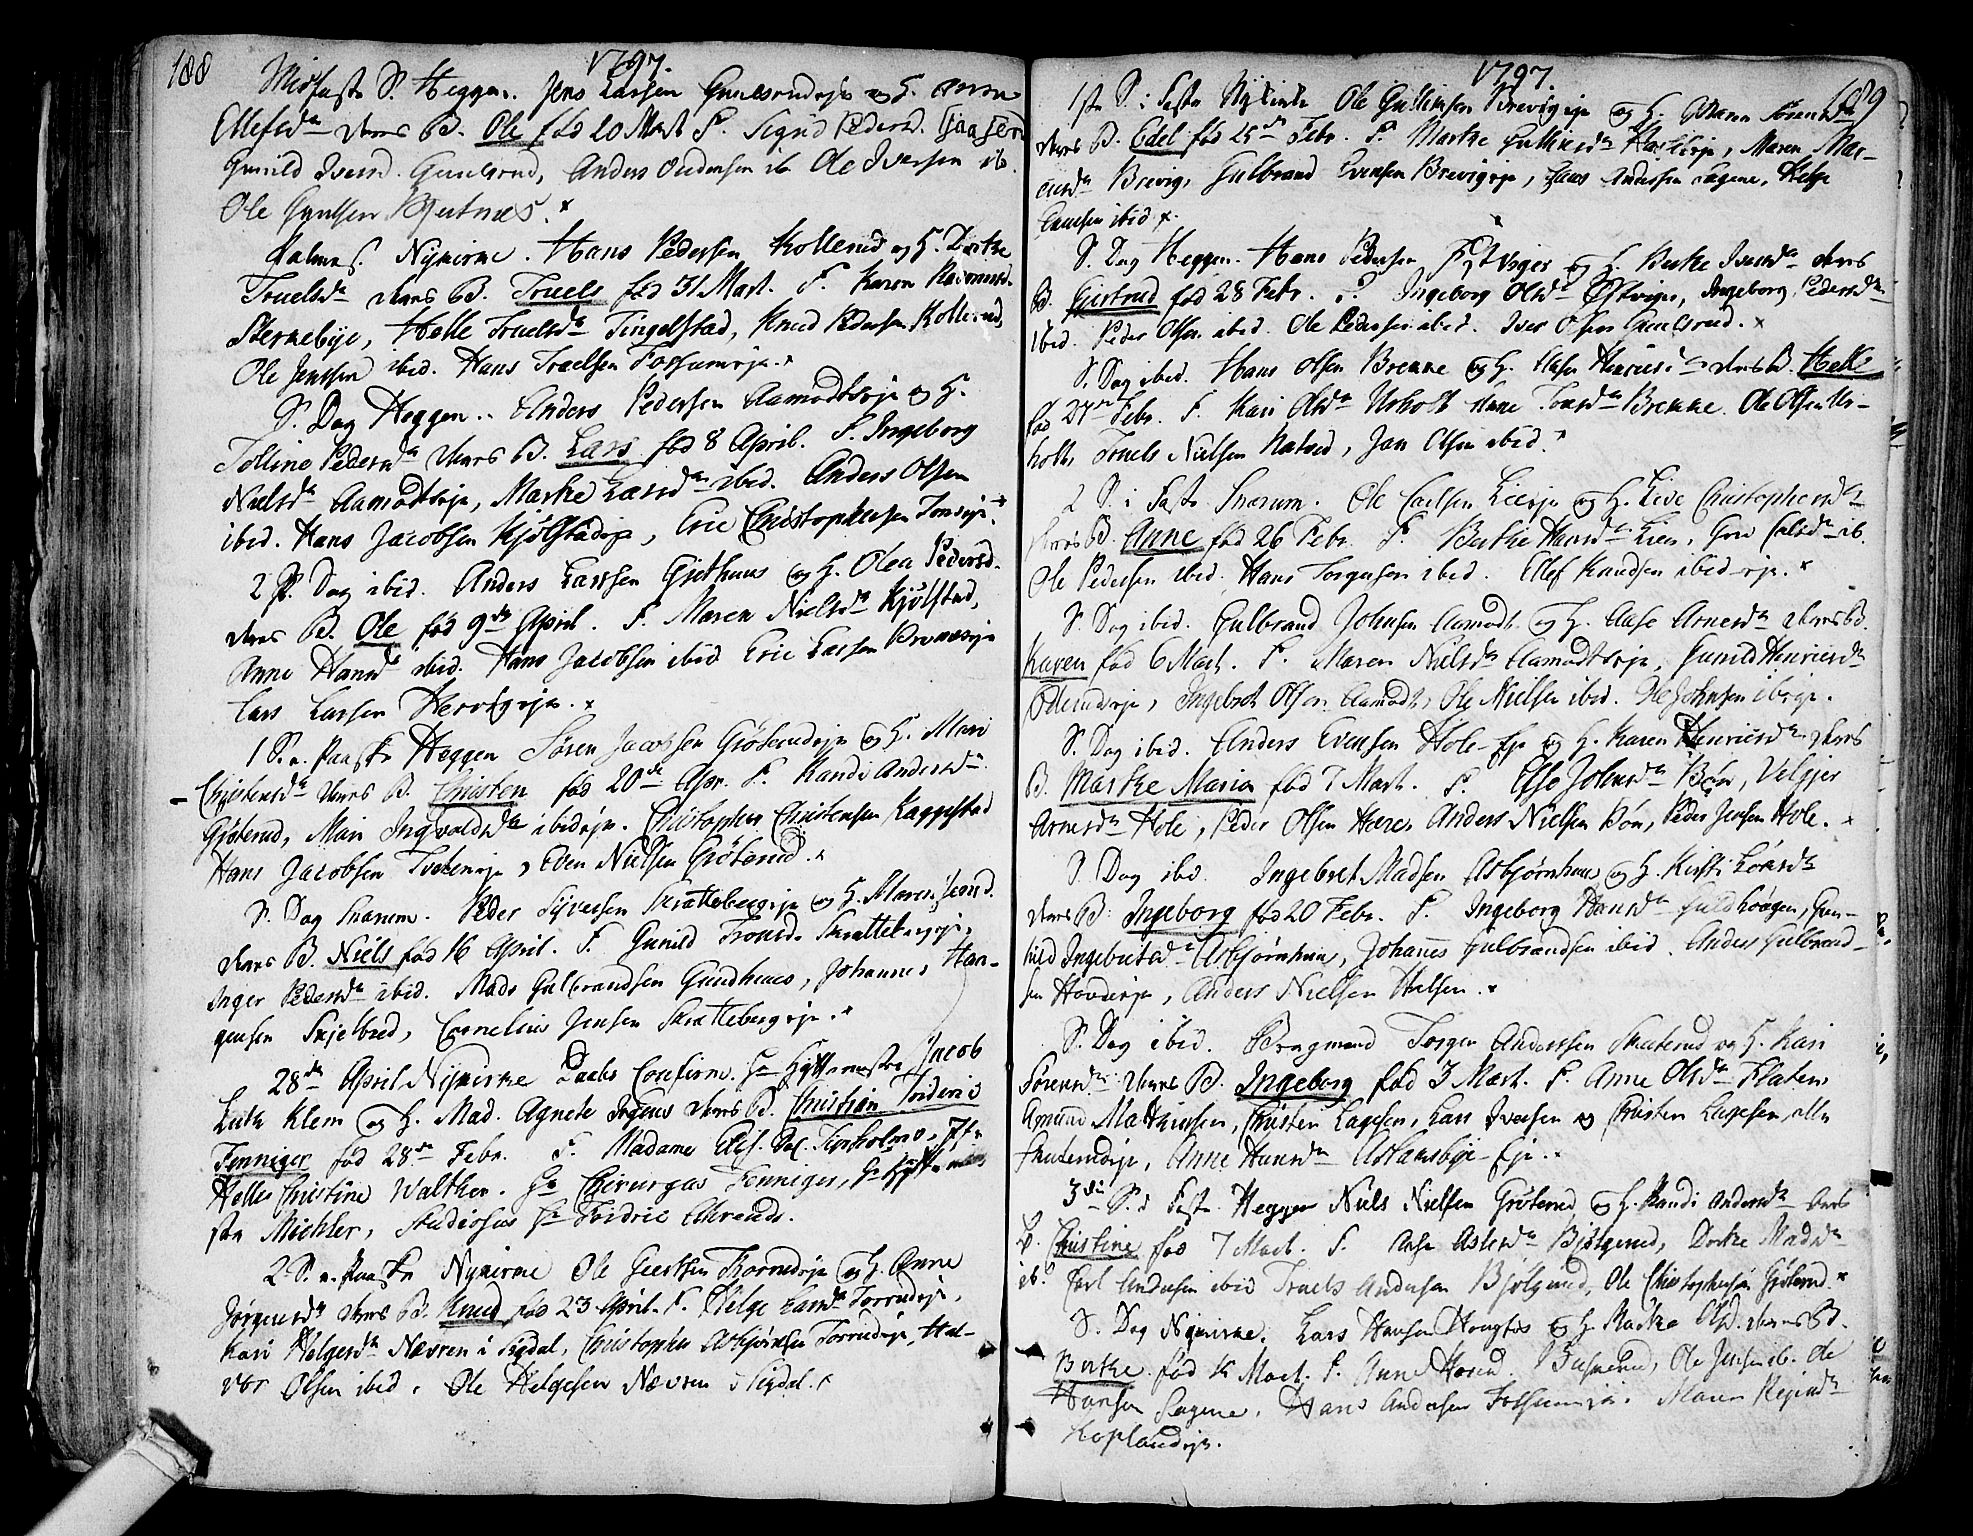 188
1797.
Midfaste S. Heggen. Jens Larsen Gunelsrudeje og H. Maren
Ellefsdr deres B. Ole fød 20 Mart F. Sigrid Pedersd.
Gunild Iversd. Gunelsrud, Anders Andersen ib. Ole Iversen ib.
Ole Gundsen
Palmes. Nykirke. Hans Pedersen Kollerud og H. Dorthe
Truelsdr deres B. Truels fød 31 Mart. F. Karen Rasmusd.
Sternebye, Helle Truelsdr Tingelstad, Knud Pedersen Kollerud,
Ole Jensen ibid. Hans Truelsen Fossumeje.
S. Dag Heggen. Anders Pedersen Aamodtseje og H.
Jolline Pedersdr deres B. Lars fød 8 April. F. Ingeborg
Nielsdr Aamodtseje, Marthe Larsdr ibid. Anders Olsen
ibid. Hans Jacobsen Kjølstadeje, Eric Christophersen
2 P. Dag ibid. Anders Larssen Gjethuus og H. Olea Pedersd.
deres B. Ole fød 9de April. F. Maren Nielsdr Kjølstad,
Anne Hansdr ibid. Hans Jacobsen ibid Eric Larsen
Lars Larsen
1 S. e. Paaske Heggen Søren Jacobsen Grøterudeje og H. Mari
Christensdr deres B. Christen fød 20de Apr. F. Randi Andersdr
Grøterud, Mari Ingvaldsdr ibideje. Christopher Christensen Kaggestad
Hans Jacobsen Tveteneje, Even Nielsen Grøterud.
S. Dag Snarum. Peder Syversen Skrattebergeje og H. Maren
deres B. Niels fød 16 April. F. Gunild Tronsd. Skrattebergeje,
Inger Pedersdr ibid. Mads Gulbrandsen Gundhuus, Johannes Han-
gensen Skjelbred, Cornelius Jensen Skrattebergeje.
28de April Nykirke Daabs Confirm. Hr Hyttemester Jacob
Luth Klem og H. Mad. Agnete deres B. Christian Frideric
Fenniger fød 28de Febr. F. Madame
Helle Christine Walther. Hr Chirurgus Fenniger, Hr Hyttemes
ster Michler, Studiosus Hr Fridric
2 S. e. Paaske Nykirke Ole Geertsen Forrudeje og H. Anne
Jørgensdr deres B. Knud fød 23 April. F. Helge Larsdr Forrudeje,
Kari Helgesdr Nævren i Sigdal, Christopher Asbjørnsen Forrudeje, Hal-
vor Olsen ibid. Ole Helgesen Nævren i Sigdal.
1797.
189
1ste S. i Faste Nykirke Ole Gulliksen Brevigeje og H. Maren Sørensdr
deres B. Edel fød 25de Febr. F. Marthe Gulliksdr Maren Mar-
cusdr Brevig, Gulbrand Evensen Brevigeje, Lars Andersen Sagene, Helge
ibid.
S. Dag Heggen. Hans Pedersen og H. Berthe Iversdr deres
B. Giertrud fød 28 Febr. F. Ingeborg Olsdr Ingeborg Pedersdr
ibid. Peder Olsen ibid. Ole Pedersen ibid. Iver Olsen Gunelsrud.
S. Dag ibid. Hans Olsen Brekke og H. deres B. Helle
fød 27de Febr. F. Kari Olsdr Urholt Anne Brekke. Ole Olsen Ur-
holt, Truels Nielsen Jan Olsen ibid.
2 S. i Faste Snarum. Ole Lieeje og H. Live Christophersdr
deres B. Anne fød 26 Febr. F. Berthe Hansdr Lien, ib.
Ole Pedersen ibid. Hans Torgersen ibid. Ellef Knudsen ibid-eje.
S. Dag ibid. Gulbrand Johnsen Aamodt og H. Aase Arnesdr deres B.
Karen fød 6 Mart. F. Maren Nielsdr Aamodtseje, Gunild Henricsdr
Ingebret Olsen Aamodt, Ole Nielsen ibid. Ole Johnsen ibeje.
S. Dag ibid. Anders Evensen Hole-eje og H. Karen Henricsdr deres
B. Marthe Maria fød 7 Mart. F. Else Johnsdr Bøn,
Arnesdr Hole, Peder Olsen Hære, Anders Nielsen Bøn, Peder Jensen Hole.
S. Dag ibid. Ingebret Madsen Asbjørnhuus og H. Kirsti
deres B. Ingeborg fød 20 Febr. F. Ingeborg Hansdr Guldhougen, Gun-
hild Ingebretsdr Asbjørnhuus, Johannes Gulbrandsen ibid. Anders Gulbrand-
sen Hovdeeje, Anders Nielsen
S. Dag ibid. Torgen Anderssen Skuterud og H. Kari
Sørensdr deres B. Ingeborg fød 3 Mart. F. Anne Olsdr Flaten,
Amund Mathiesen, Christen Lagesen, Lars Iversen og Christen Lagesen, alle
Skuterudeje, Anne Hansdr Aslaksbye-Eje.
3die S. i Faste Heggen Niels Nielsen Grøterud og H. Randi Andersdr deres
B. Christine fød 7 Mart. F. Aase Aslesdr Bjølgerud, Dorthe Madsdr
ib. Carl Andersen ibid Truels Andersen Bjølgerud, Ole Christophersen Grøterud.
S. Dag Nykirke. Lars Hansen Hougfos og H. Marthe deres B.
Birthe fød Mart. F. Anne Buskerud, Ole Jensen ib. Ole
Hansen Sagene, Hans Andersen Fossumeje. Maren
Koplandeje.